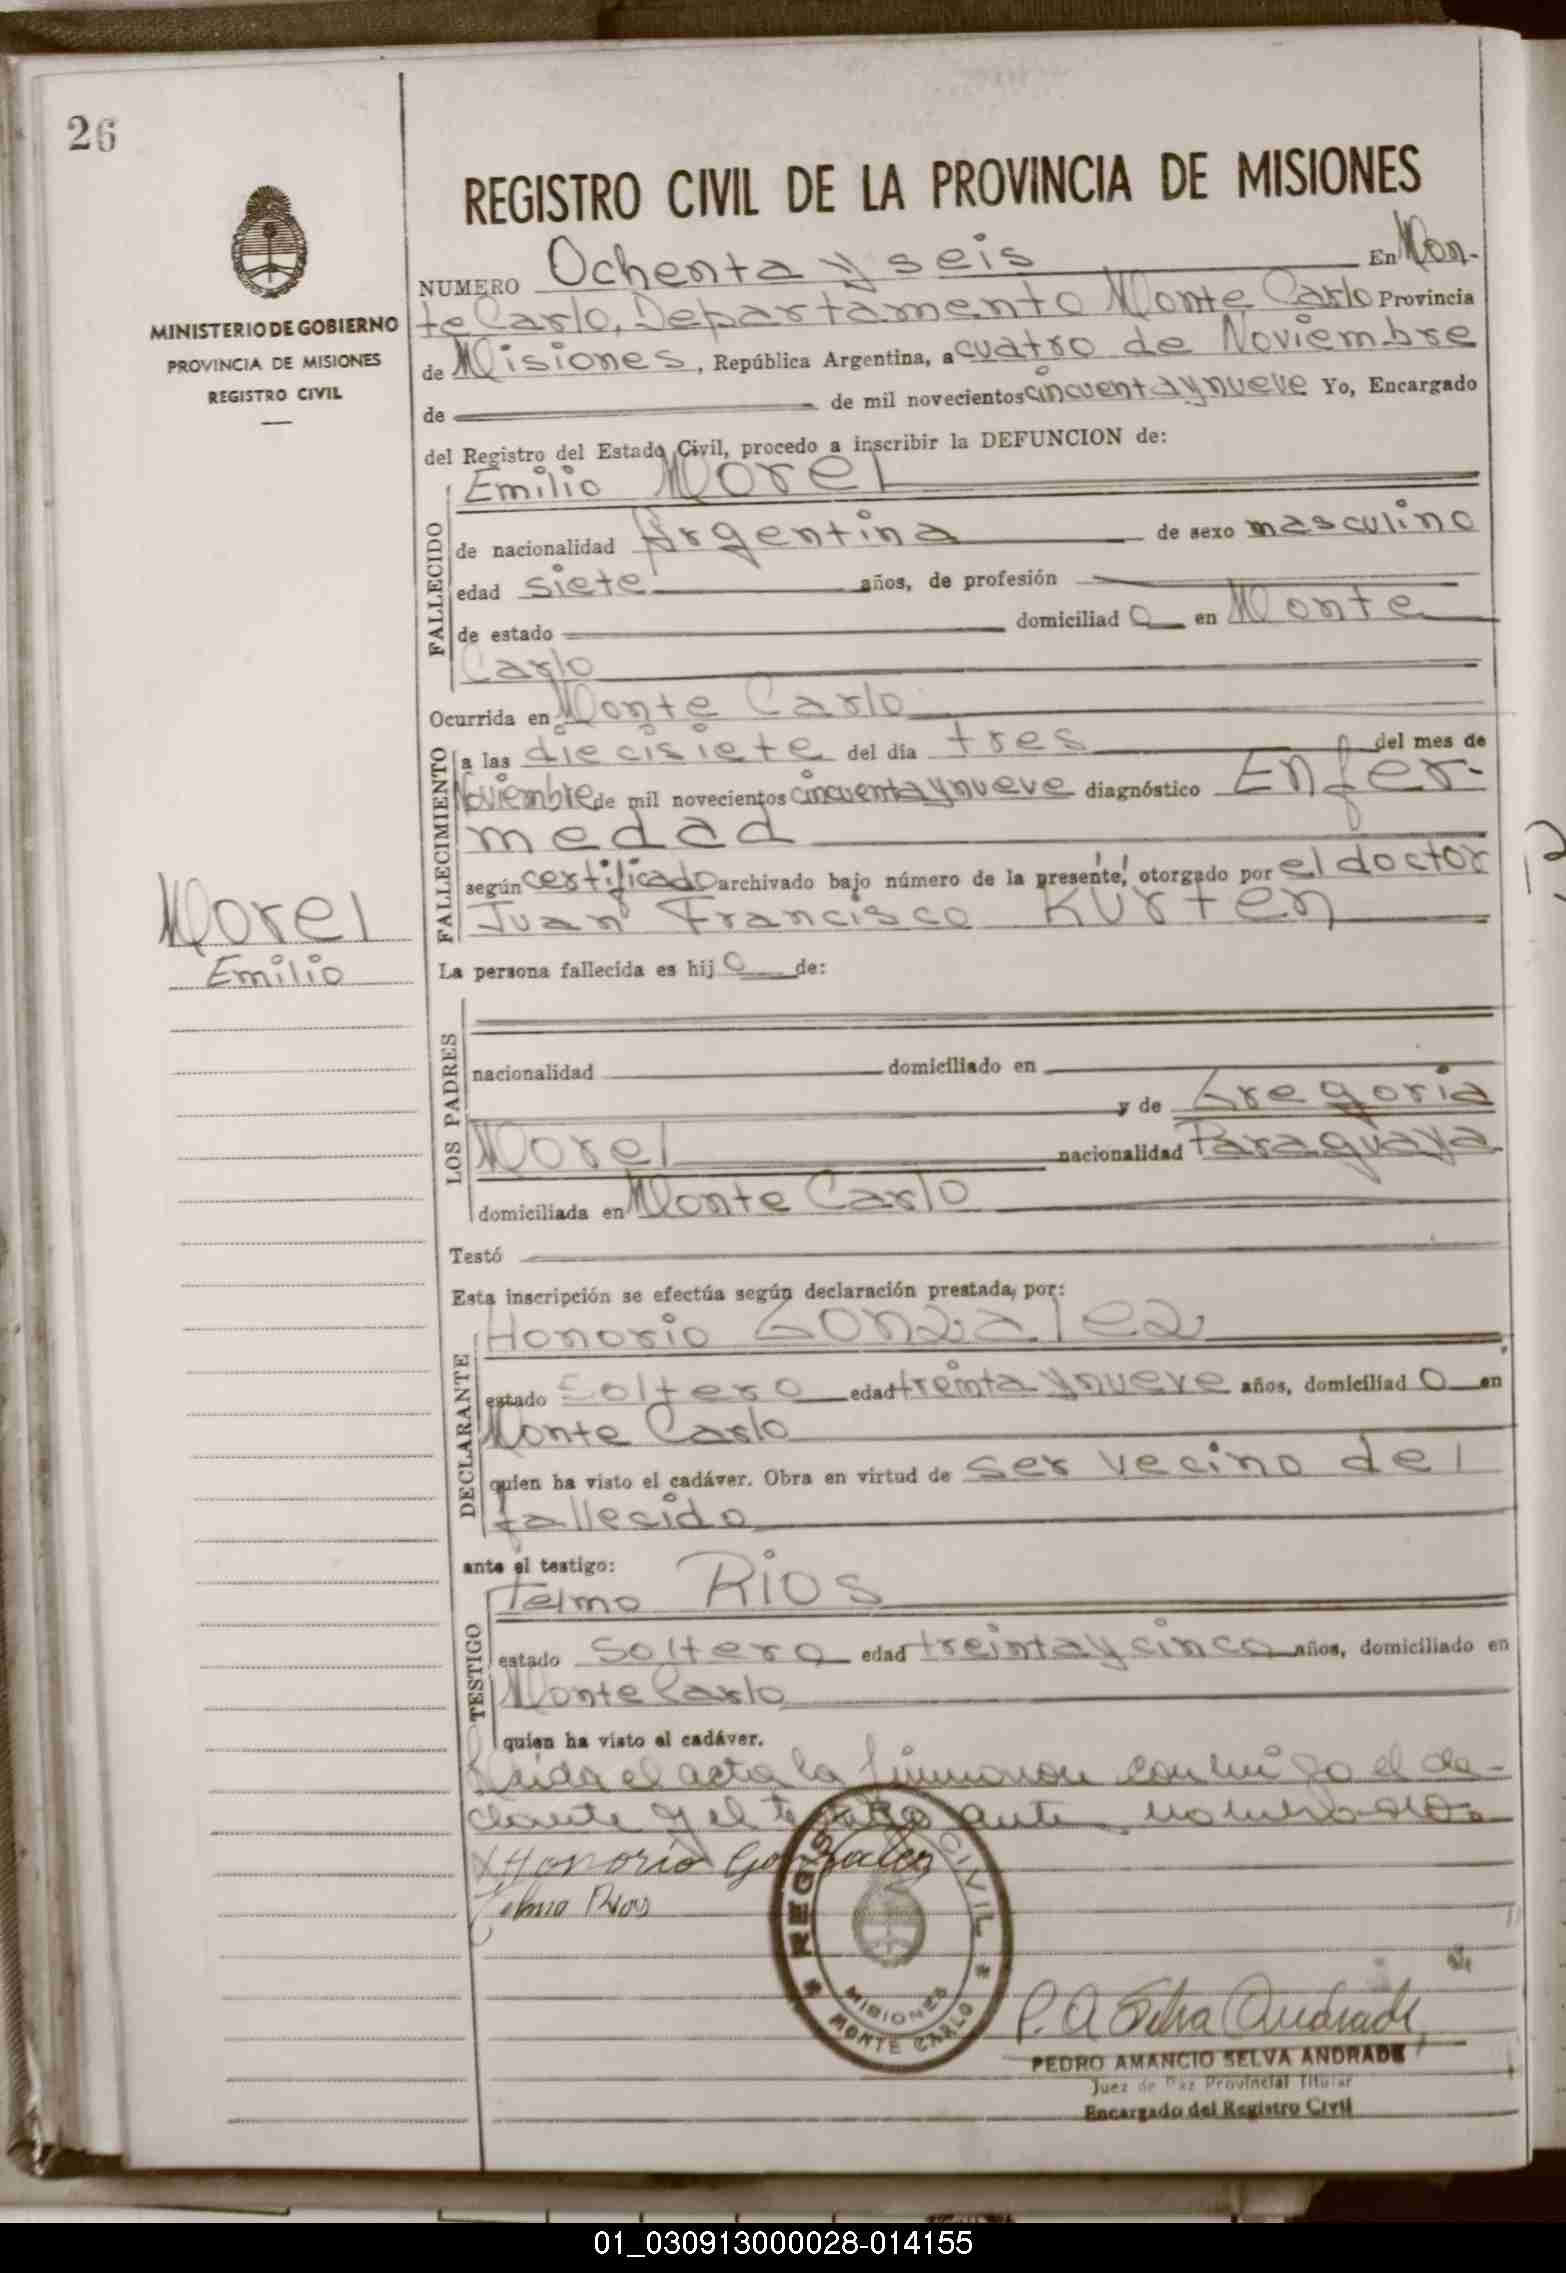 26
MINISTERIO DE GOBIERNO
PROVINCIA DE MISIONES
REGISTRO CIVIL
REGISTRO CIVIL DE LA PROVINCIA DE MISIONES
NUMERO Ochenta y seis En Mon-
te Carlo, Departamento Monte Carlo Provincia
de Misiones, República Argentina, a cuatro de Noviembre
de de mil novecientos cincuenta y nueve Yo, Encargado
del Registro del Estado Civil, procedo a inscribir la DEFUNCION de:
FALLECIDO
Emilio Morel
de nacionalidad Argentina de sexo masculino
edad siete años, de profesión
de estado domiciliad o en Monte
Carlo
Ocurrida en Monte Carlo
FALLECIMIENTO
a las diecisiete del día tres del mes de
Noviembre de mil novecientos cincuenta y nueve diagnóstico Enfer-
medad
según certificado archivado bajo número de la presente, otorgado por el doctor
Juan Francisco Kurten
Morel
Emilio
La persona fallecida es hij o de:
LOS PADRES
nacionalidad domiciliado en
y de Gregoria
Morel nacionalidad Paraguaya
domiciliada en Monte Carlo
Testó
Esta inscripción se efectúa según declaración prestada, por:
DECLARANTE
Honorio Gonzalez
estado Soltero edad treinta y nueve años, domiciliad o en
Monte Carlo
quien ha visto el cadáver. Obra en virtud de ser vecino del
fallecido
ante el testigo:
TESTIGO
Telmo Rios
estado Soltero edad treinta y cinco años, domiciliado en
Monte Carlo
quien ha visto el cadáver.
Leida el acta la firmaron conmigo el de-
clarante y el testigo ante nombrado.
Honorio Gonzalez
Telmo Rios
REGISTRO CIVIL
MISIONES
MONTE CARLO
P. A. Selva Andrade
PEDRO AMANCIO SELVA ANDRADE
Juez de Paz Provincial Titular
Encargado del Registro Civil
01_030913000028-014155